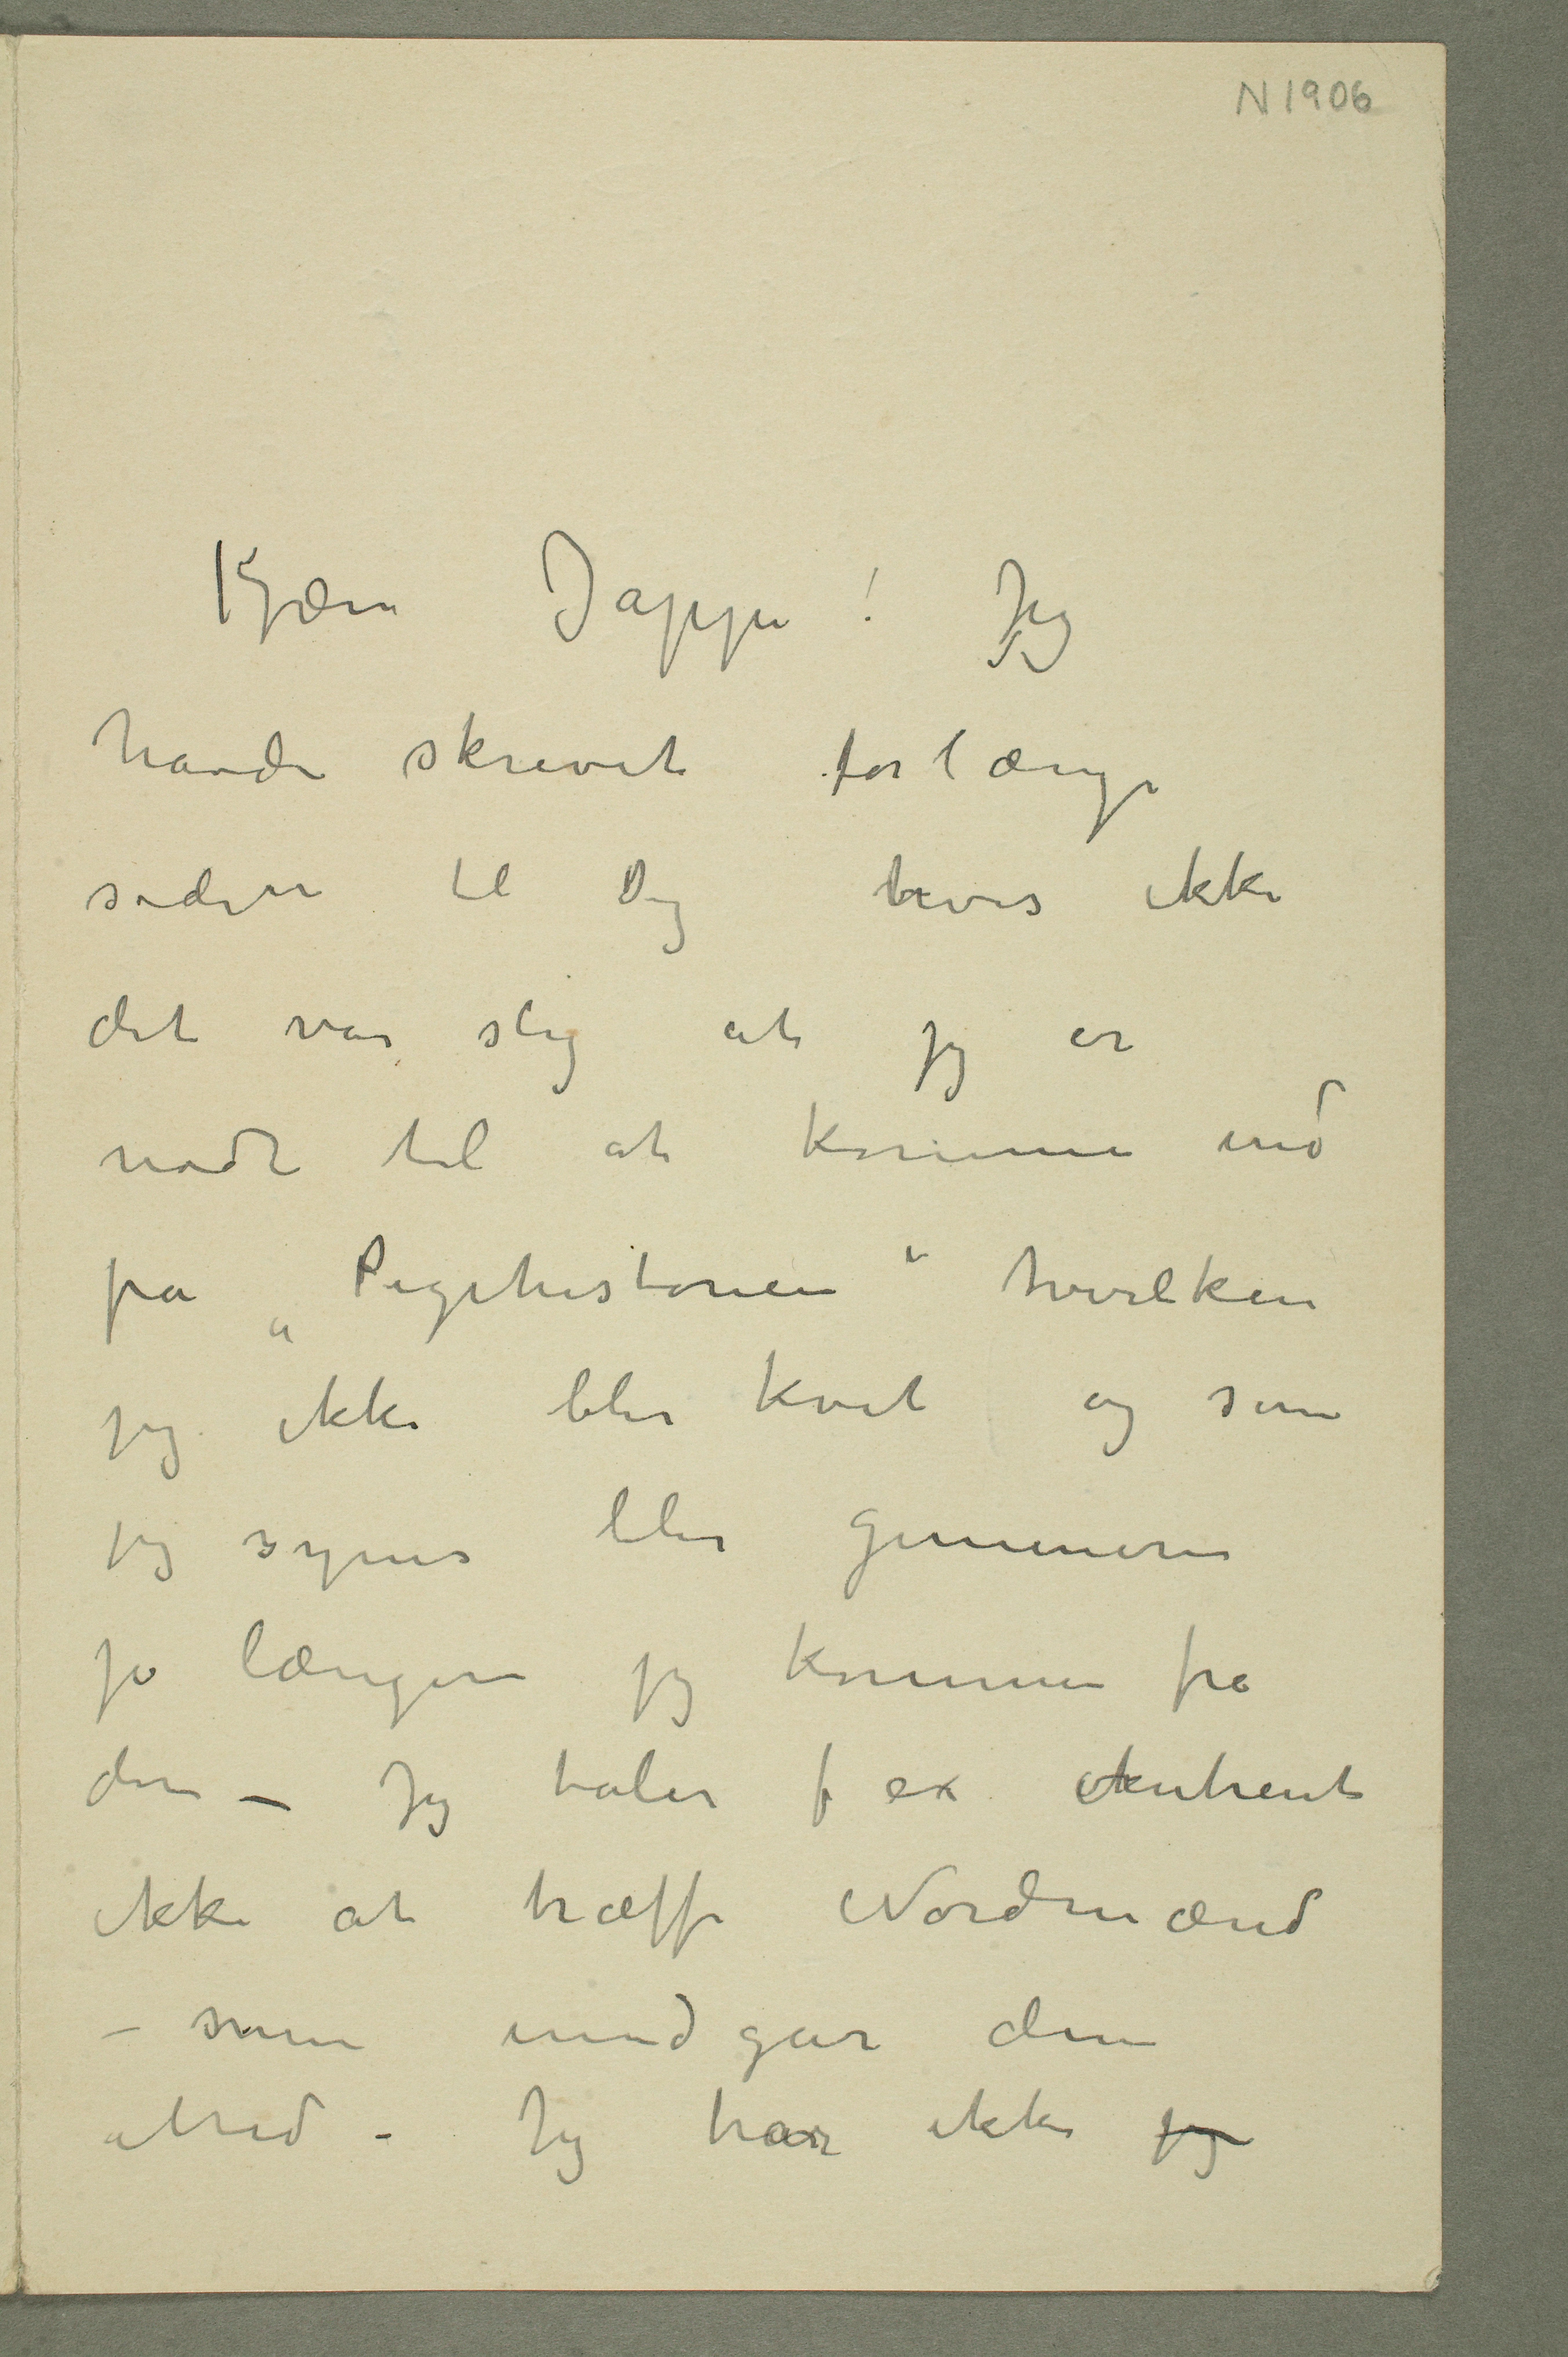 N 1906
Kjære Jappe! Jeg
havde skrevet forlænge
siden til Dig hvis ikke
det var slig at jeg er
nødt til at komme ind
på „Pigehistorien“ hvilken
jeg ikke blir kvit og som
jeg synes blir gemenere
jo længere jeg kommer fra
den – Jeg taler f ex omtrent
ikke at træffe Nordmænd
– som undgår dem
altid – Jeg har ikke jeg